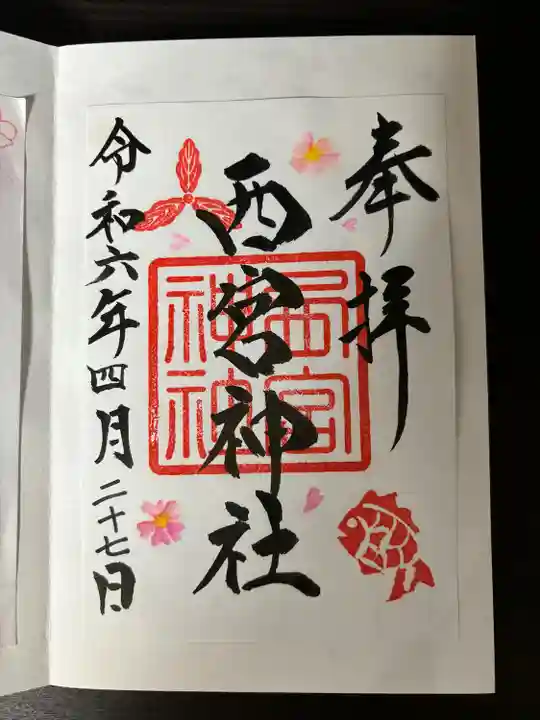 奉拝
西宮神社
西宮
神社
令和六年四月二十七日